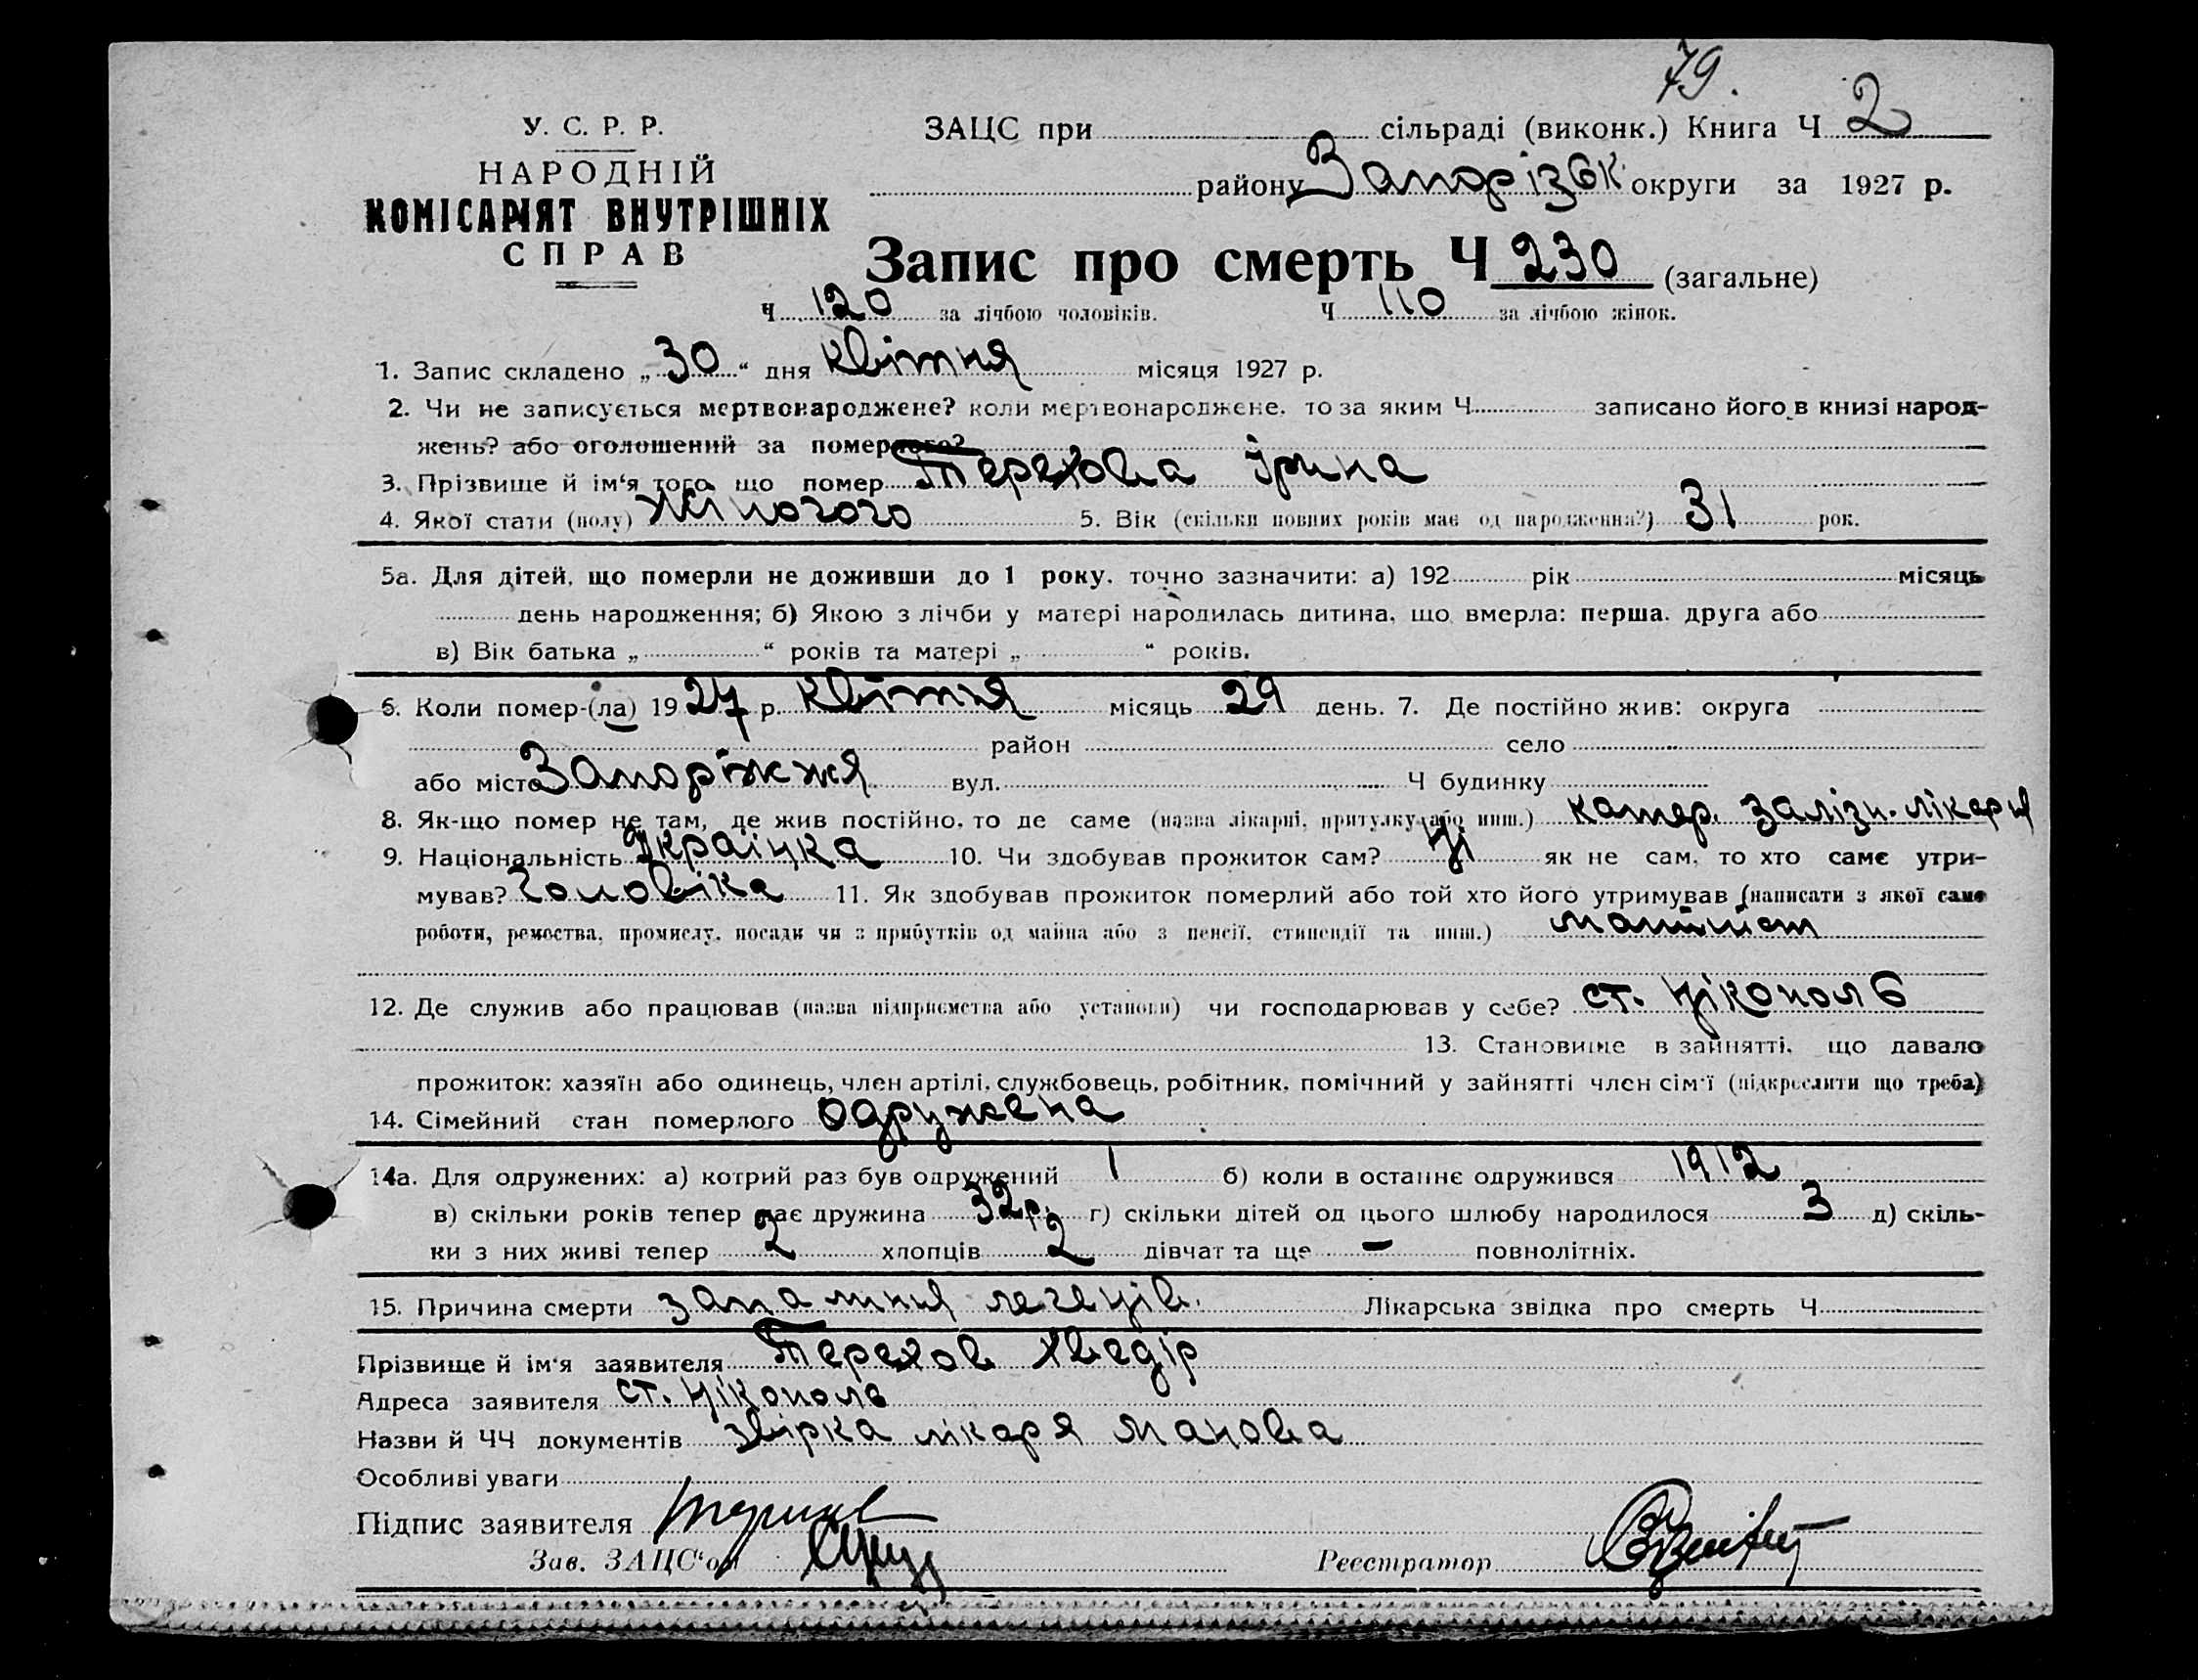 79.
У. С. Р. Р.
НАРОДНІЙ
КОМІСАРІЯТ ВНУТРІШНІХ
СПРАВ
ЗАЦС при сільраді (виконк.) Книга Ч 2
району Запорізьк округи за 1927 р.
Запис про смерть Ч 230 (загальне)
Ч 120 за лічбою чоловіків. Ч 110 за лічбою жінок.
1. Запис складено „30“ дня квітня місяця 1927 р.
2. Чи не записується мертвонароджене? коли мертвонароджене, то за яким Ч записано його в книзі народ-
жень? або оголошений за померлого?
3. Прізвище й ім'я того, що помер Терехова Ірина
4. Якої стати (полу) жіночого 5. Вік (скільки повних років має од народження?) 31 рок.
5а. Для дітей, що померли не доживши до 1 року, точно зазначити: а) 192 рік місяць
день народження; б) Якою з лічби у матері народилась дитина, що вмерла: перша, друга або
в) Вік батька „ “ років та матері „ “ років.
6. Коли помер-(ла) 1927 р. квітня місяць 29 день. 7. Де постійно жив: округа
район село
або місто Запоріжжя вул. Ч будинку
8. Як-що помер не там, де жив постійно, то де саме (назва лікарні, притулку або инш.) катер. залізн. лікарня
9. Національність Українка 10. Чи здобував прожиток сам? Ні як не сам, то хто саме утри-
мував? Чоловіка 11. Як здобував прожиток померлий або той хто його утримував (написати з якої саме
роботи, ремества, промислу, посади чи з прибутків од майна або з пенсії, стипендії та инш.) машиніст
12. Де служив або працював (назва підприємства або установи) чи господарював у себе? ст. Нікополь
13. Становище в зайнятті, що давало
прожиток: хазяїн або одинець, член артілі, службовець, робітник, помічний у зайнятті член сім'ї (підкреслити що треба)
14. Сімейний стан померлого одружена
14а. Для одружених: а) котрий раз був одружений 1 б) коли в останнє одружився 1912
в) скільки років тепер має дружина 32 р. г) скільки дітей од цього шлюбу народилося 3 д) скіль-
ки з них живі тепер 2 хлопців 2 дівчат та ще – повнолітніх.
15. Причина смерти запалиння легенів. Лікарська звідка про смерть Ч
Прізвище й ім'я заявителя Терехов Хведір
Адреса заявителя ст. Нікополь
Назви й ЧЧ документів лікаря
Особливі уваги
Підпис заявителя
Зав. ЗАЦС'ом Реєстратор